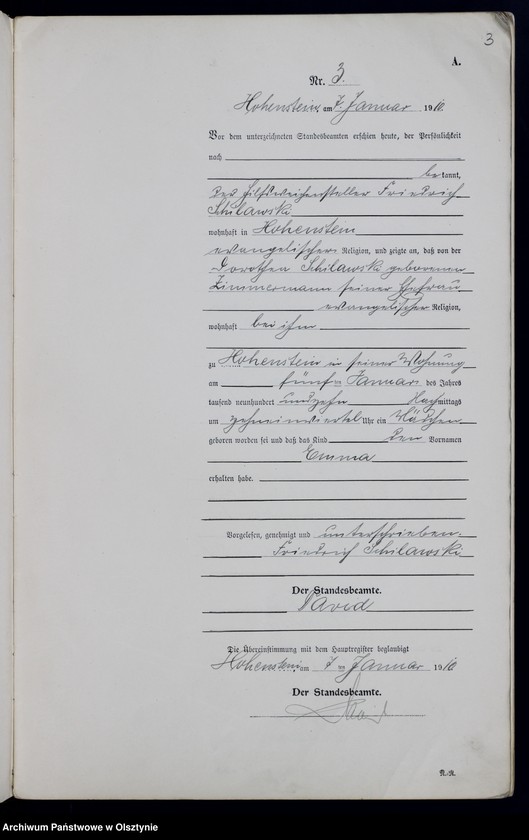 3
A.
Nr. 3.
Hohenstein, am 7. Januar 1910
Vor dem unterzeichneten Standesbeamten erschien heute, der Persönlichkeit
nach
bekannt,
der Hilfsweichensteller Friedrich
Schilawski
wohnhaft in Hohenstein
evangelischer Religion, und zeigte an, daß von der
Dorothea Schilawski geborenen
Zimmermann seiner Ehefrau
evangelischer Religion,
wohnhaft bei ihm
zu Hohenstein in seiner Wohnung
am fünften Januar des Jahres
tausend neunhundert und zehn Nachmittags
um zehneinviertel Uhr ein Mädchen
geboren worden sei und daß das Kind den Vornamen
Emma
erhalten habe.
Vorgelesen, genehmigt und unterschrieben.
Friedrich Schilawski
Der Standesbeamte.
David
Die Übereinstimmung mit dem Hauptregister beglaubigt
Hohenstein am 7ten Januar 1910
Der Standesbeamte.
David
N.-R.
Archiwum Państwowe w Olsztynie